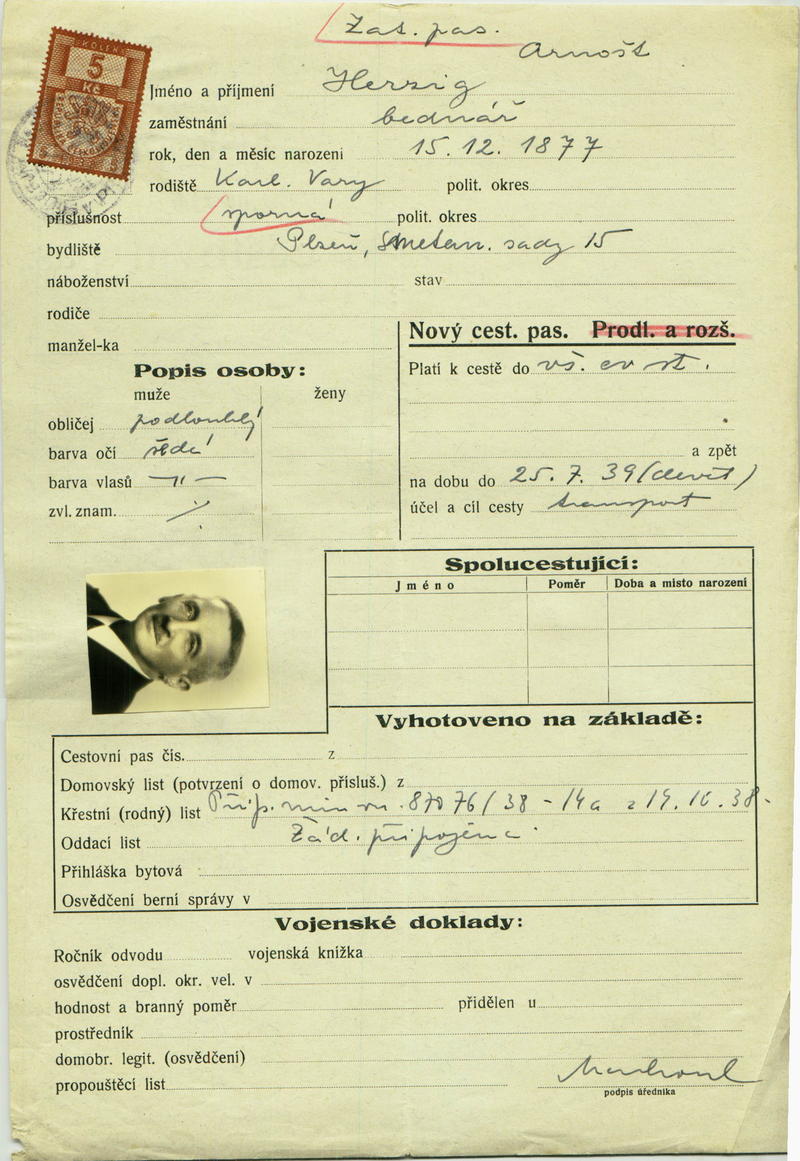 Zat. pas.
Arnošt
Jméno a příjmení Herzig
zaměstnání bednář
rok, den a měsíc narození 15. 12. 1877
rodiště Karl. Vary polit. okres
příslušnost sporná polit. okres
bydliště Plzeň, Smetan. sady 15
náboženství stav
rodiče
manžel-ka
Nový cest. pas. Prodl. a rozš.
Popis osoby:
muže ženy
obličej podlouhlý
barva očí šedé
barva vlasů —"—
zvl. znam. /
Platí k cestě do vš. ev st.
a zpět
na dobu do 25. 7. 39 (devět)
účel a cíl cesty transport
Spolucestující:
Jméno Poměr Doba a místo narození
Vyhotoveno na základě:
Cestovní pas čís. z
Domovský list (potvrzení o domov. přísluš.) z
Křestní (rodný) list Příp. min vn. 87076/38 - 14a z 19. 10. 38.
Oddací list Žád. připojena
Přihláška bytová
Osvědčení berní správy v
Vojenské doklady:
Ročník odvodu vojenská knížka
osvědčení dopl. okr. vel. v
hodnost a branný poměr přidělen u
prostředník
domobr. legit. (osvědčení)
propouštěcí list
podpis úředníka
KOLEK
5
Kč